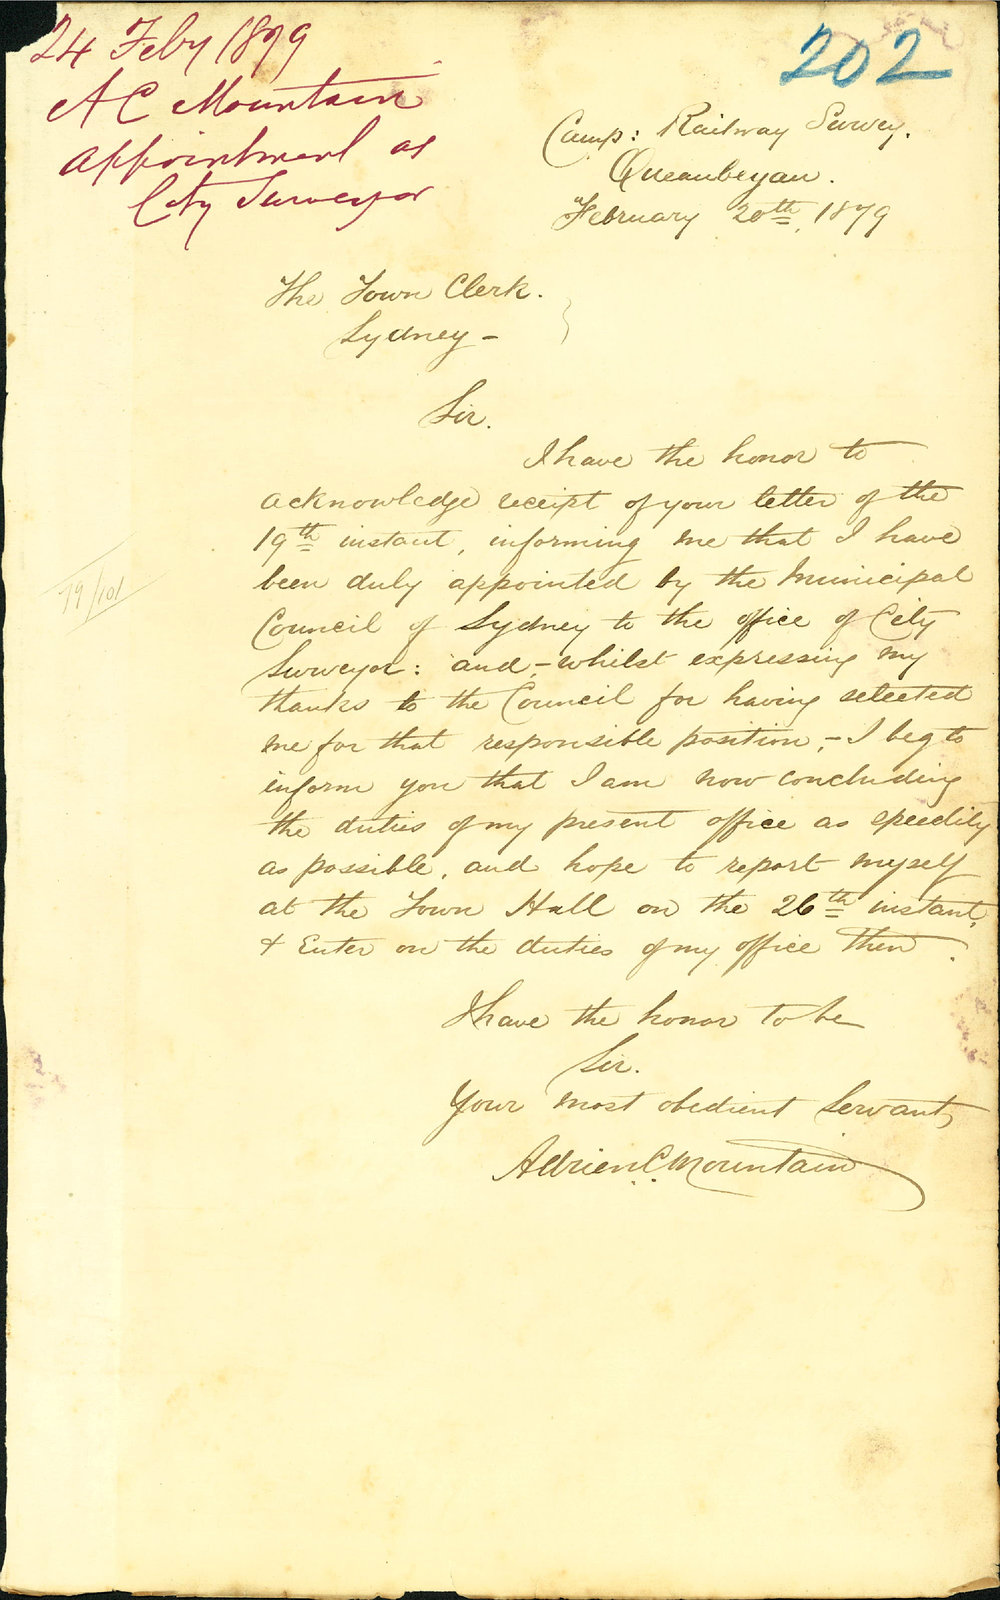 24 Feby 1879
A C Mountain
Appointment as
City Surveyor
202
Camp: Railway Survey.
Queanbeyan.
February 20th, 1879
The Town Clerk.
Sydney -
Sir.
I have the honor to
acknowledge receipt of your letter of the
19th instant, informing me that I have
been duly appointed by the Municipal
Council of Sydney to the office of City
Surveyor: and,- whilst expressing my
thanks to the Council for having selected
me for that responsible position,- I beg to
inform you that I am now concluding
the duties of my present office as speedily
as possible, and hope to report myself
at the Town Hall on the 26th instant,
& Enter on the duties of my office then.
I have the honor to be
Sir.
Your most obedient Servant,
Adrien C. Mountain
79/101